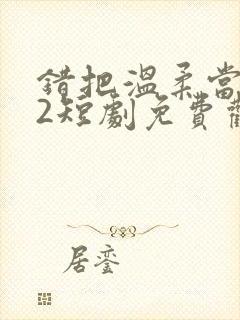 錯把溫柔當
2短劇免費
居鸞